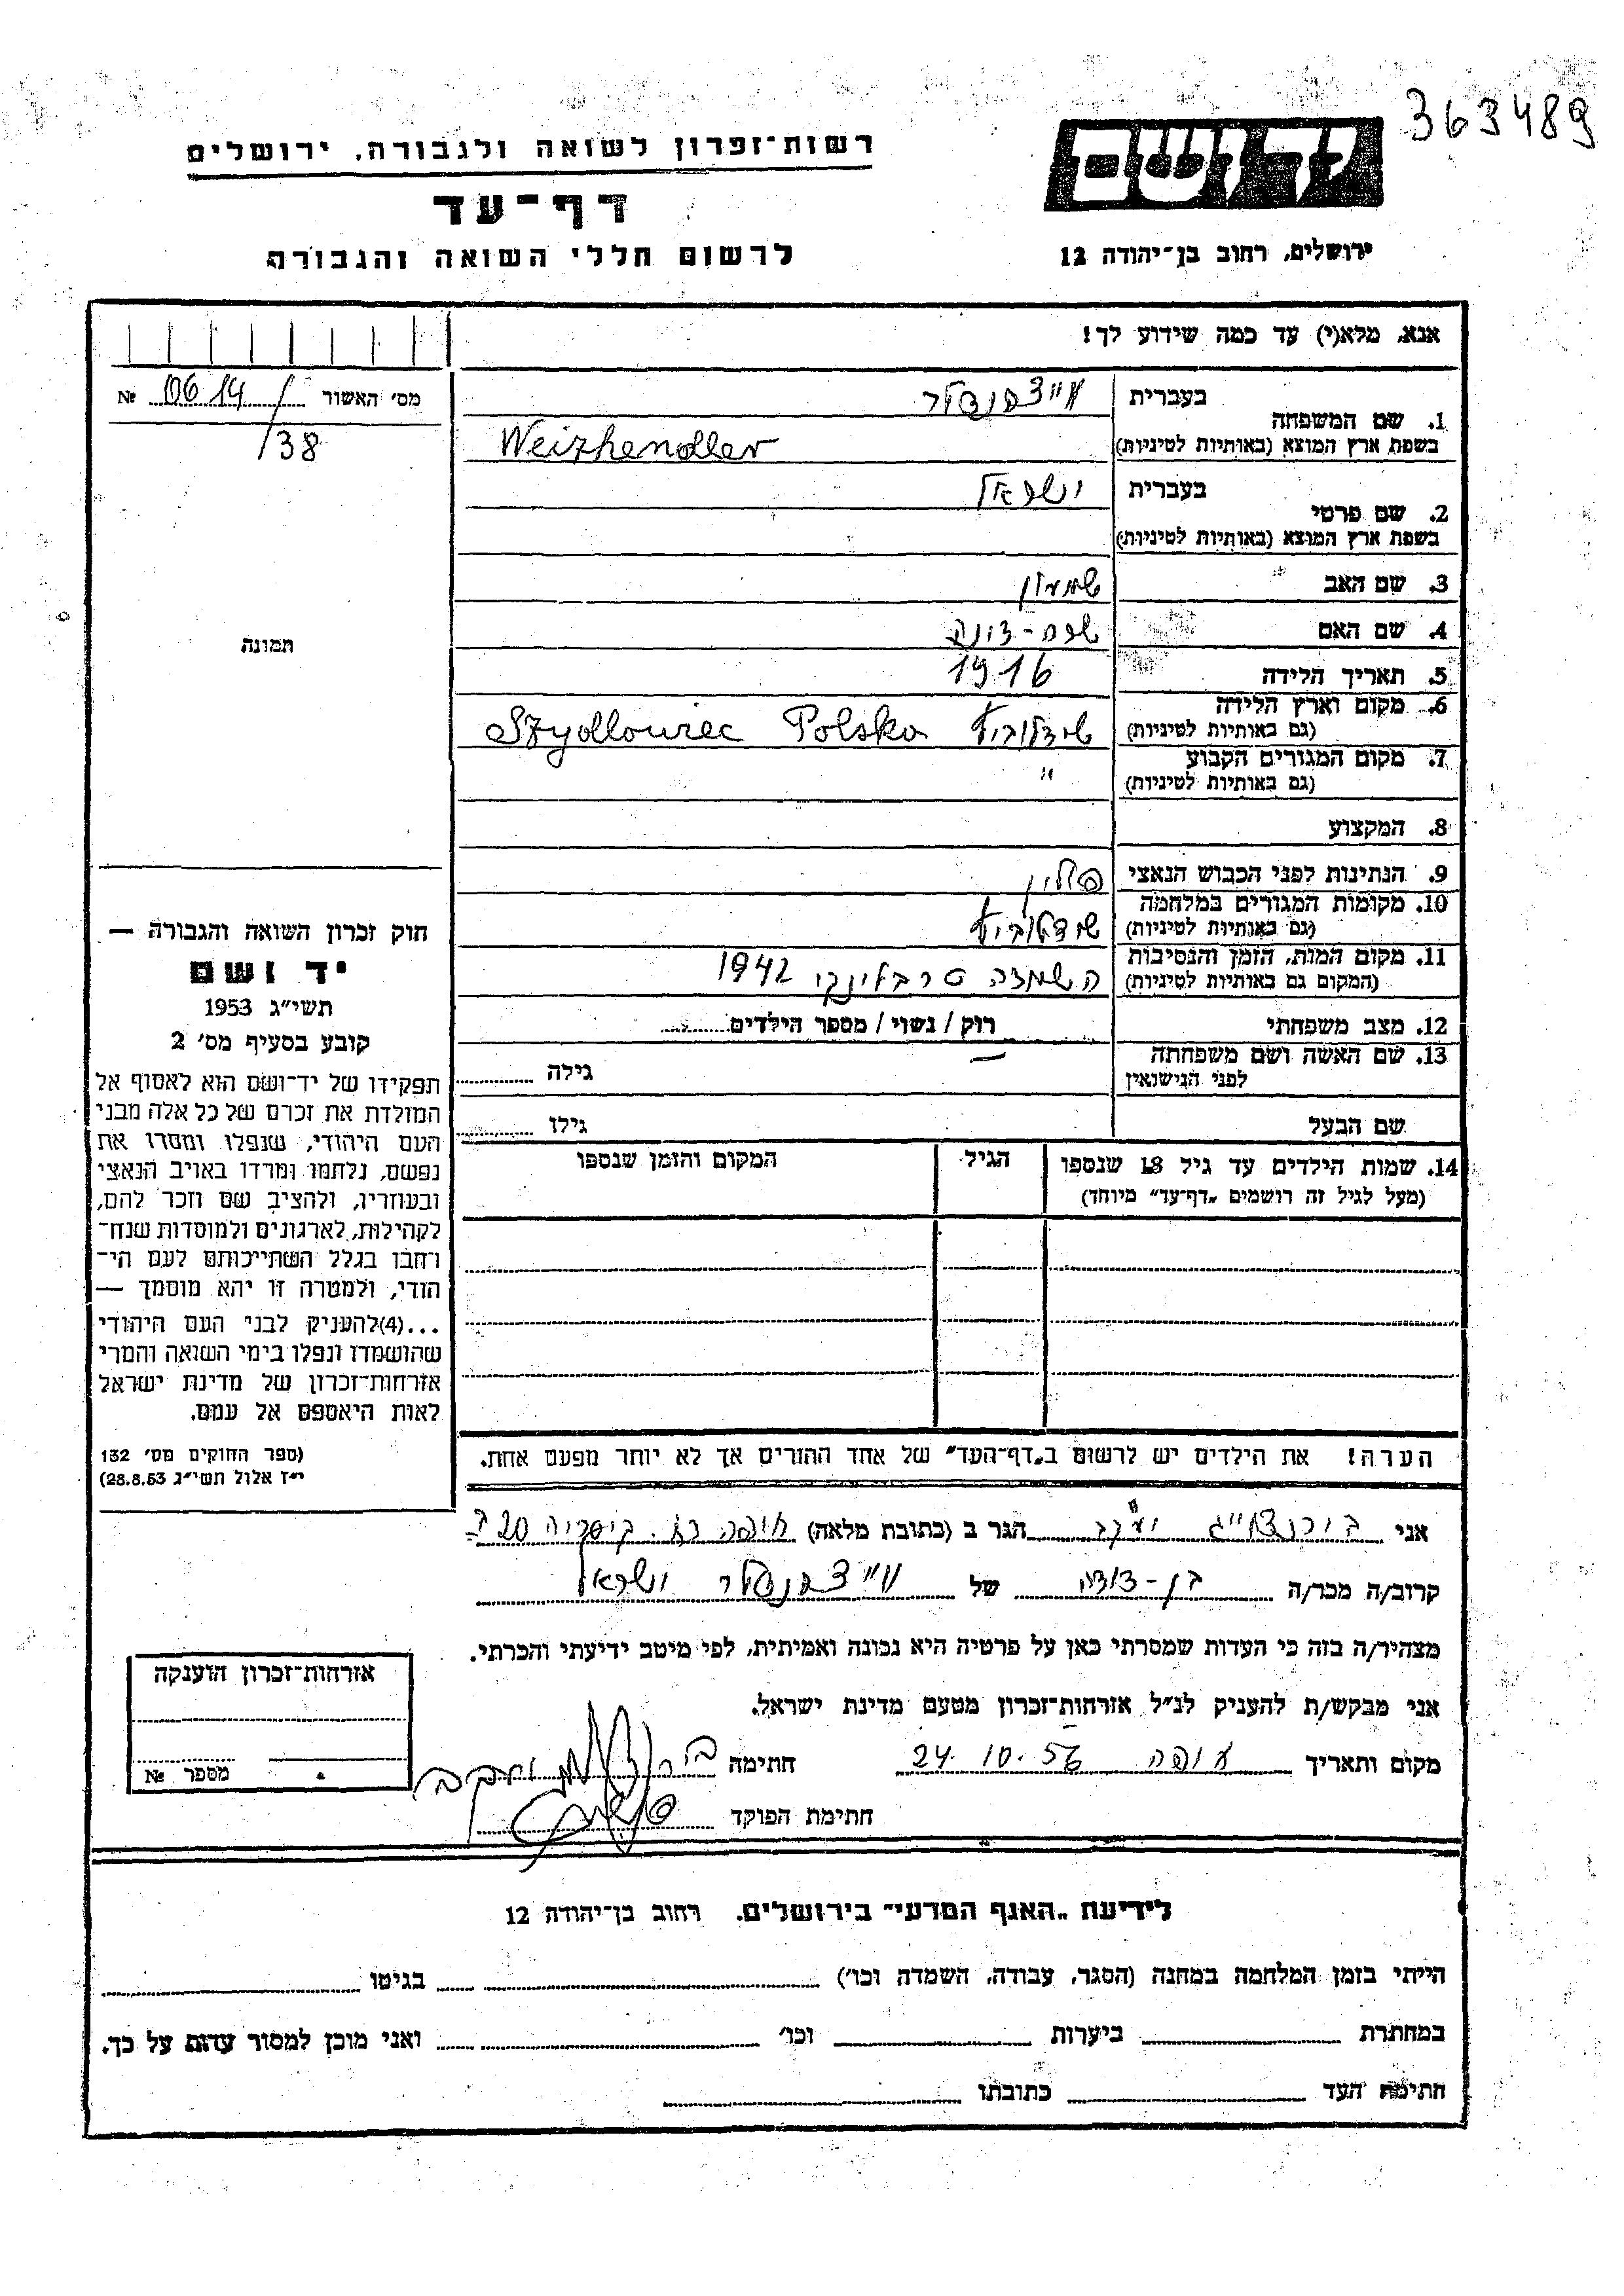 363489
רשות־זכרון לשואה ולגבורה, ירושלים
יד ושם
דף־עד
לרשום חללי השואה והגבורה
ירושלים, רחוב בן־יהודה 12
אנא, מלא(י) עד כמה שידוע לך!
מס' האשור 0614/ №
/38
1. שם המשפחה בעברית ווייצהנדלר
בשפת ארץ המוצא (באותיות לטיניות) Weizhendler
2. שם פרטי בעברית ישראל
בשפת ארץ המוצא (באותיות לטיניות)
3. שם האב שמעון
4. שם האם
5. תאריך הלידה 1916
6. מקום וארץ הלידה שידלוביץ Szydlowiec Polska
(גם באותיות לטיניות)
7. מקום המגורים הקבוע "
(גם באותיות לטיניות)
8. המקצוע
9. הנתינות לפני הכבוש הנאצי פולין
10. מקומות המגורים במלחמה שידלוביץ
(גם באותיות לטיניות)
11. מקום המות, הזמן והנסיבות השמדה טרבלינקי 1942
(המקום גם באותיות לטיניות)
12. מצב משפחתי רוק / נשוי / מספר הילדים
13. שם האשה ושם משפחתה גילה
לפני הנישואין
שם הבעל גילו
14. שמות הילדים עד גיל 18 שנספו הגיל המקום והזמן שנספו
(מעל לגיל זה רושמים „דף־עד" מיוחד)
הערה! את הילדים יש לרשום ב„דף־העד" של אחד ההורים אך לא יותר מפעם אחת.
תמונה
חוק זכרון השואה והגבורה —
יד ושם
תשי"ג 1953
קובע בסעיף מס' 2
תפקידו של יד־ושם הוא לאסוף אל
המולדת את זכרם של כל אלה מבני
העם היהודי, שנפלו ומסרו את
נפשם, נלחמו ומרדו באויב הנאצי
ובעוזריו, ולהציב שם וזכר להם,
לקהילות, לארגונים ולמוסדות שנח־
רחבו בגלל השתייכותם לעם הי־
הודי, ולמטרה זו יהא מוסמך —
...(4)להעניק לבני העם היהודי
שהושמדו ונפלו בימי השואה והמרי
אזרחות־זכרון של מדינת ישראל
לאות היאספם אל עמם.
(ספר החוקים מס' 132
י"ז אלול תשי"ג 28.8.53)
אני בירנצווייג יעקב הגר ב (כתובת מלאה) חיפה רח. קיסריה 20
קרוב/ה מכר/ה בן-דודה של ווייצהנדלר ישראל
מצהיר/ה בזה כי העדות שמסרתי כאן על פרטיה היא נכונה ואמיתית, לפי מיטב ידיעתי והכרתי.
אני מבקש/ת להעניק לנ"ל אזרחות־זכרון מטעם מדינת ישראל.
מקום ותאריך חיפה 24.10.56 חתימה
חתימת הפוקד
אזרחות־זכרון הוענקה
מספר №
לידיעת „האגף המדעי" בירושלים, רחוב בן־יהודה 12
הייתי בזמן המלחמה במחנה (הסגר, עבודה, השמדה וכו') בגיטו
במחתרת ביערות וכו' ואני מוכן למסור עדות על כך.
חתימת העד כתובתו